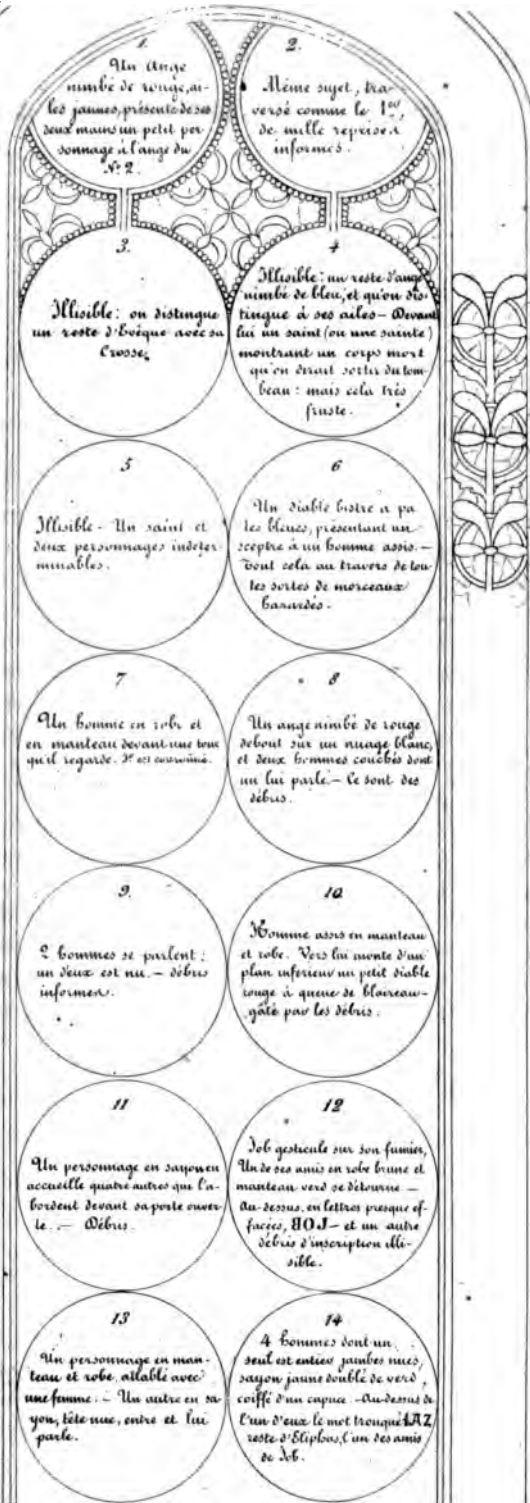 1.
Un Ange
nimbé de rouge, ai-
les jaunes, présente de ses
deux mains un petit per
sonnage à l'ange du
N° 2.
2.
Même sujet, tra
versé comme le 1er,
de mille reprises
informes.
3.
Illisible: on distingue
un reste d'Evêque avec sa
Crosse.
4
Illisible: un reste d'ange
nimbé de bleu, et qu'on dis-
tingue à ses ailes — Devant
lui un saint (ou une sainte)
montrant un corps mort
qu'on dirait sortir du tom-
beau: mais cela très
fruste.
5
Illisible - Un saint et
deux personnages indéter-
minables.
6
Un diable bistre a pa
tes bleues, présentant un
sceptre à un homme assis. —
Tout cela au travers de tou
tes sortes de morceaux
hasardés.
7
Un homme en robe et
en manteau devant une tour
qu'il regarde. Il est couronné.
8
Un ange nimbé de rouge
debout sur un nuage blanc,
et deux hommes couchés dont
un lui parle. — Ce sont des
débris.
9.
2 hommes se parlent;
un d'eux est nu. — débris
informes.
10
Homme assis en manteau
et robe. Vers lui monte d'un
plan inférieur un petit diable
rouge à queue de blaireau -
gâté par les débris.
11
Un personnage en sayon en
accueille quatre autres que l'a-
bordent devant sa porte ouver
te. — Débris.
12
Job gesticule sur son fumier,
Un de ses amis en robe brune et
manteau verd se détourne —
Au-dessus, en lettres presque ef-
facées, BOJ — et un autre
débris d'inscription illi-
sible.
13
Un personnage en man-
teau et robe, attablé avec
une femme: — Un autre en sa
yon, tête nue, entre et lui
parle.
14
4 hommes dont un
seul est entier jambes nues,
sayon jaune doublé de verd,
coiffé d'un capuce. — Au-dessus de
l'un d'eux le mot tronqué LAZ
reste d'Eliphas, l'un des amis
de Job.